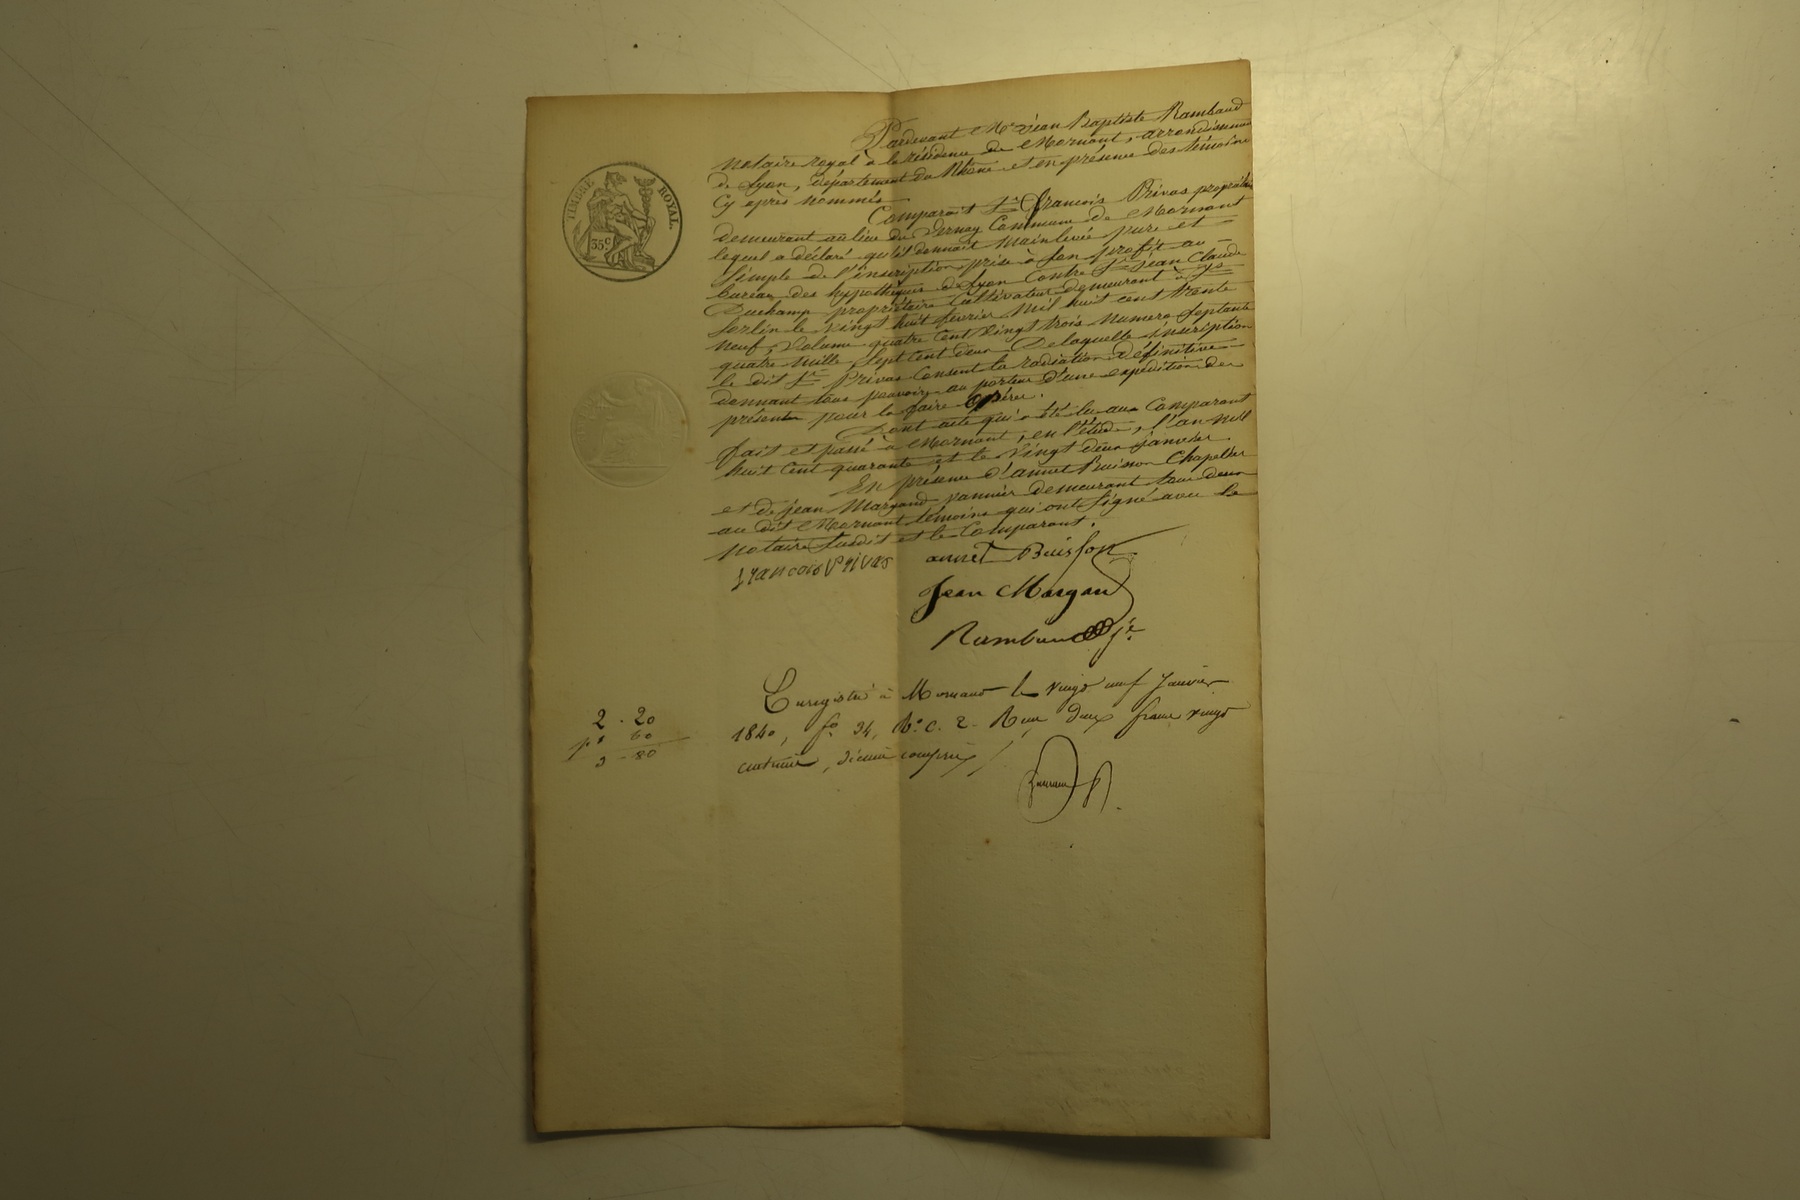 Pardevant Me Jean Baptiste Rambaud
notaire royal à la résidence de Mornant, arrondissement
de Lyon, département du Rhône et en présence des témoins
Cy après nommés
Comparaît Sr François Privas propriétaire
demeurant au lieu du Vernay Commune de Mornant
lequel a déclaré qu'il donnait mainlevée pure et
simple de l'inscription prise à son profit au
bureau des hypothèques de Lyon Contre Sr Jean Claude
Duchamp propriétaire Cultivateur demeurant à St
Sorlin le vingt huit février Mil huit cent trente
neuf, Volume quatre Cent Vingt trois Numero Septante
quatre mille Sept Cent deux De laquelle inscription
le dit Sr Privas Consent la radiation définitive
donnant tous pouvoirs au porteur d'une expédition des
présentes pour la faire opérer.
Dont acte qui a été lu aux Comparant
fait et passé à Mornant, en l'étude, l'an mil
huit Cent quarante et le Vingt deux janvier
En présence d'annet Buisson Chapelier
et de jean Margand vannier demeurant tous deux
au dit Mornant témoins qui ont Signé avec le
notaire Susdit et le Comparant.
françois Privas annet Buisson
Jean Margand
Rambaud
Enregistré à Mornant le vingt neuf Janvier
1840, fo 34, Ro. C. 2. Reçu deux francs vingt
centimes, décime compris
2 . 20
60
2 - 80
TIMBRE ROYAL
35 C